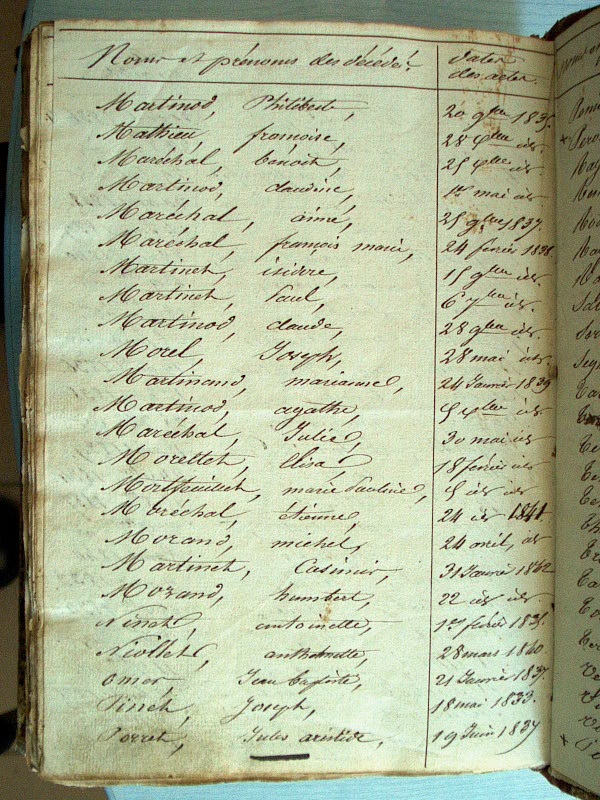 Noms et prénoms des décédés. dates des actes.
Martinod, Philiberte, 20 9bre 1835.
Mathieu françoise, 28 id.
Maréchal, benoit, 25 id.
Martinod, claudine, 1er mai id.
Maréchal, aimé, 25 9bre 1837.
Maréchal, françois marie, 24 février 1838.
Martinet, isidore, 15 9bre id.
Martinet, Paul, 6 7bre id.
Martinod, claude, 28 9bre id.
Morel, Joseph, 28 mai id.
Martinand, marianne, 24 Janvier 1839
Martinod, agathe, 5 id.
Maréchal, Julie, 30 mai id
Morettet, élisa, 18 février id
Montfouillet, marie Pauline, 5 id id
Maréchal, étienne, 24 id 1841.
Morand, michel, 24 avril, id
Martinet, Casimir, 31 Janvier 1842
Morand, humbert, 22 id id
Ninet, antoinette, 1er février 1835.
Niollet, 28 mars 1840.
omer, Jean baptiste, 21 Janvier 1837.
Pinet, Joseph, 18 mai 1833.
Porret, Jules aristide, 19 Juin 1837